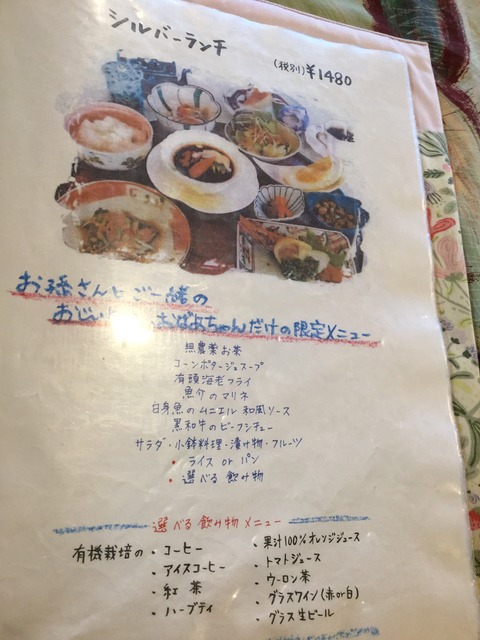 シルバーランチ
(税別)¥1480
お孫さんとご一緒の
おじいちゃん おばあちゃんだけの限定メニュー
無農薬お茶
コーンポタージュスープ
有頭海老フライ
魚介のマリネ
白身魚のムニエル 和風ソース
黒和牛のビーフシチュー
サラダ・小鉢料理・漬け物・フルーツ
・ライス or パン
・選べる 飲み物
選べる 飲み物 メニュー
有機栽培の・コーヒー
・アイスコーヒー
・紅茶
・ハーブティ
・果汁100%オレンジジュース
・トマトジュース
・ウーロン茶
・グラスワイン(赤or白)
・グラス生ビール